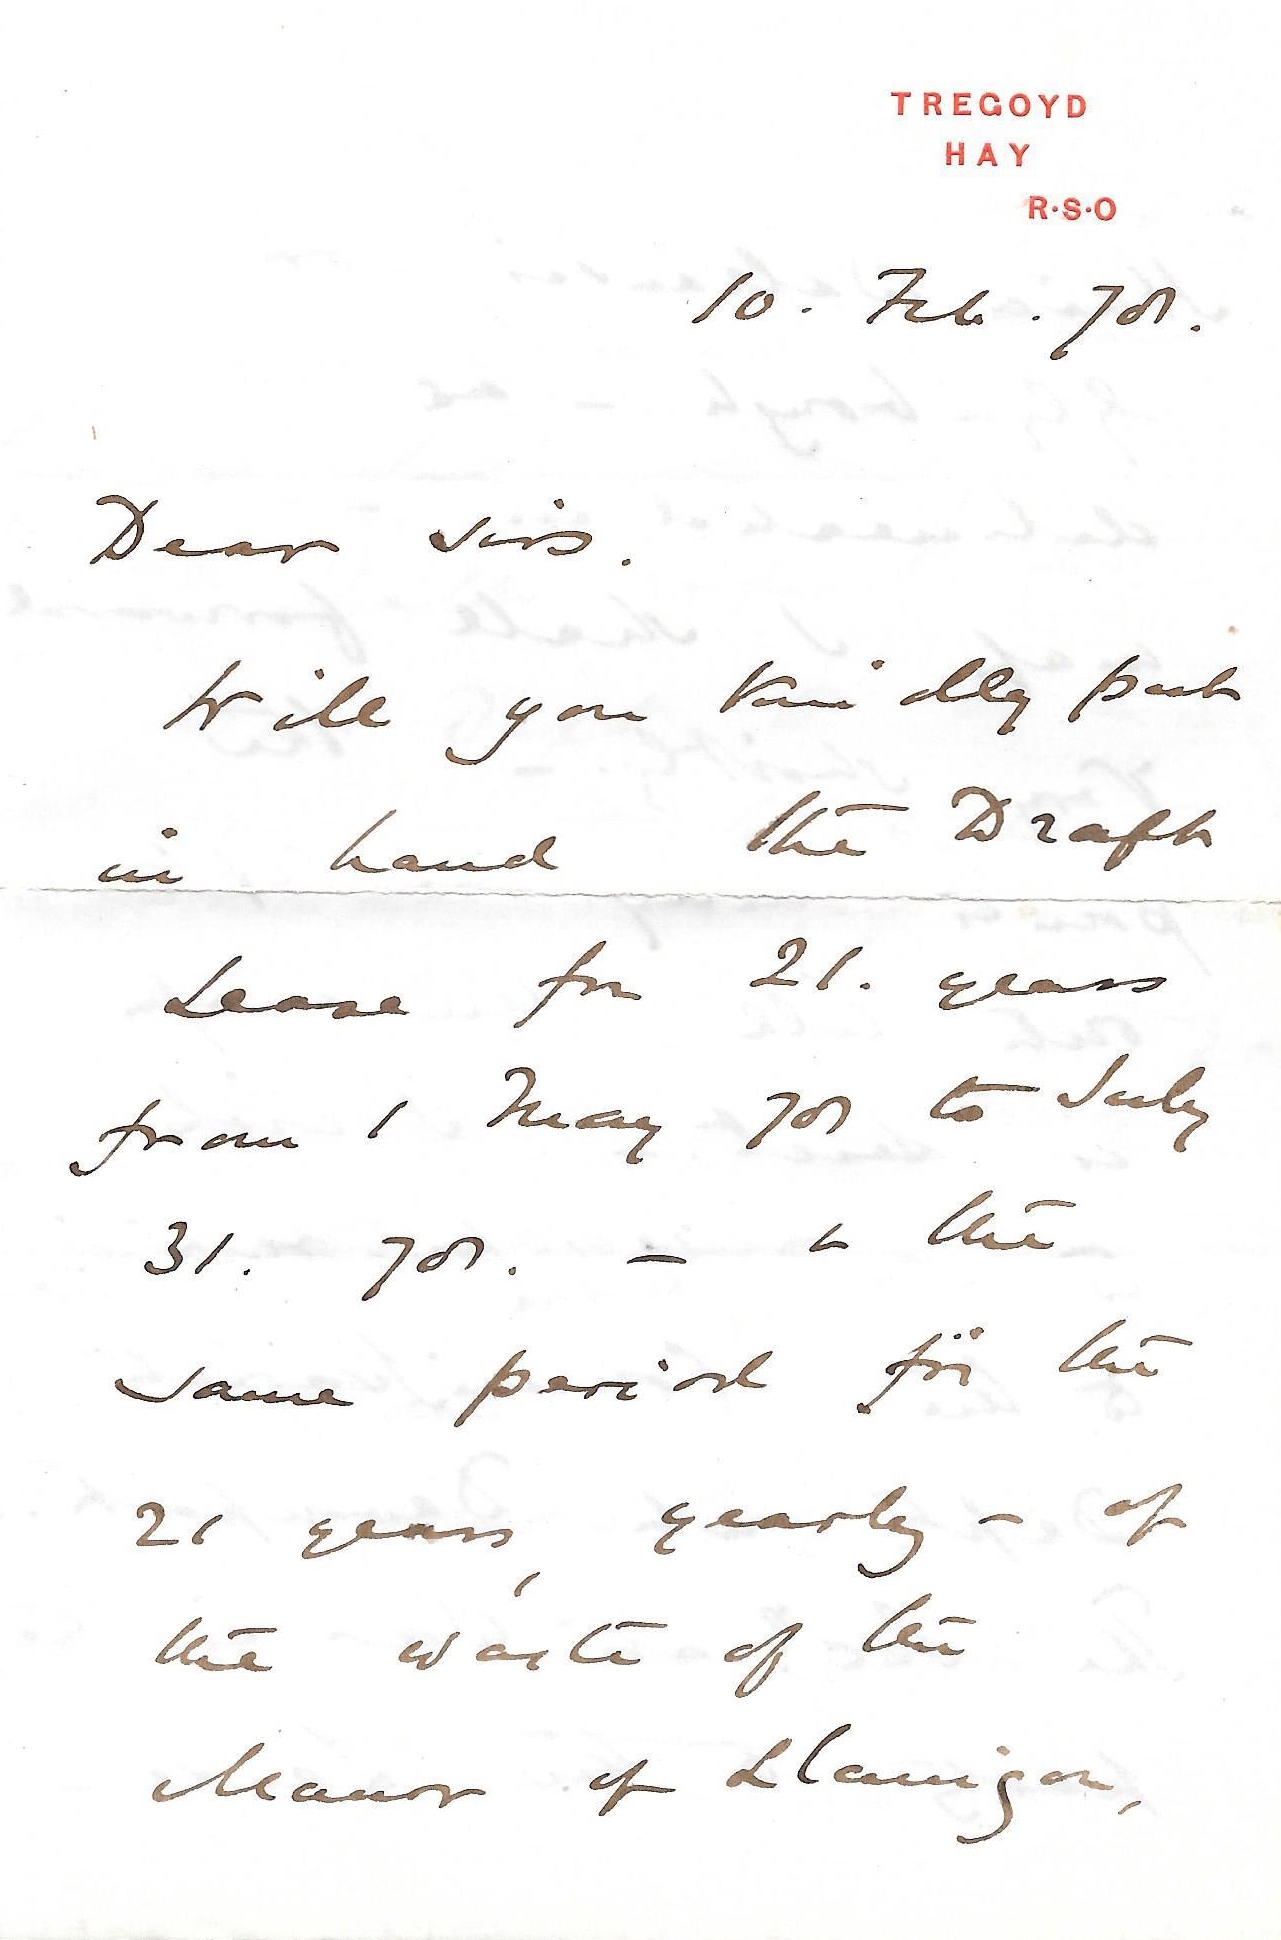 TREGOYD
HAY
R.S.O
10. Feb. 78.
Dear Sirs.
Will you kindly put
in hand the Draft
Lease for 21. years
from 1 May 78 to July
31. 78. – & the
same period for the
21 years, yearly – of
the waste of the
Manor of Llanigon,